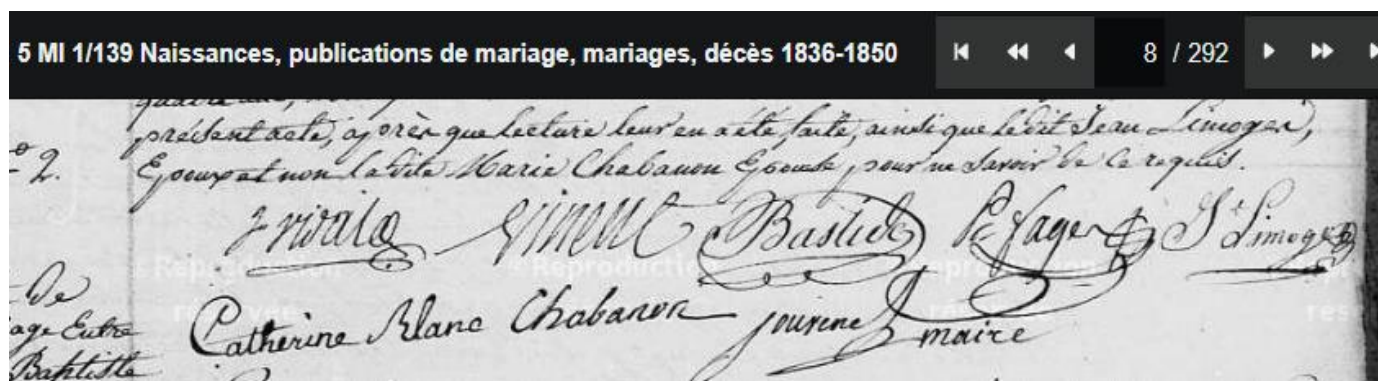 5 MI 1/139 Naissances, publications de mariage, mariages, décès 1836-1850 8 / 292
présent acte, après que lecture leur en a été faite, ainsi que le dit Jean Limoges,
n° 2. Epoux et non la dite Marie Chabanon Epouse, pour ne savoir de ce requis.
Bastide P. Fages J. Limoges
Reproduction Reproduction
de
Catherine Blanc Chabanon maire
age Entre
Baptiste